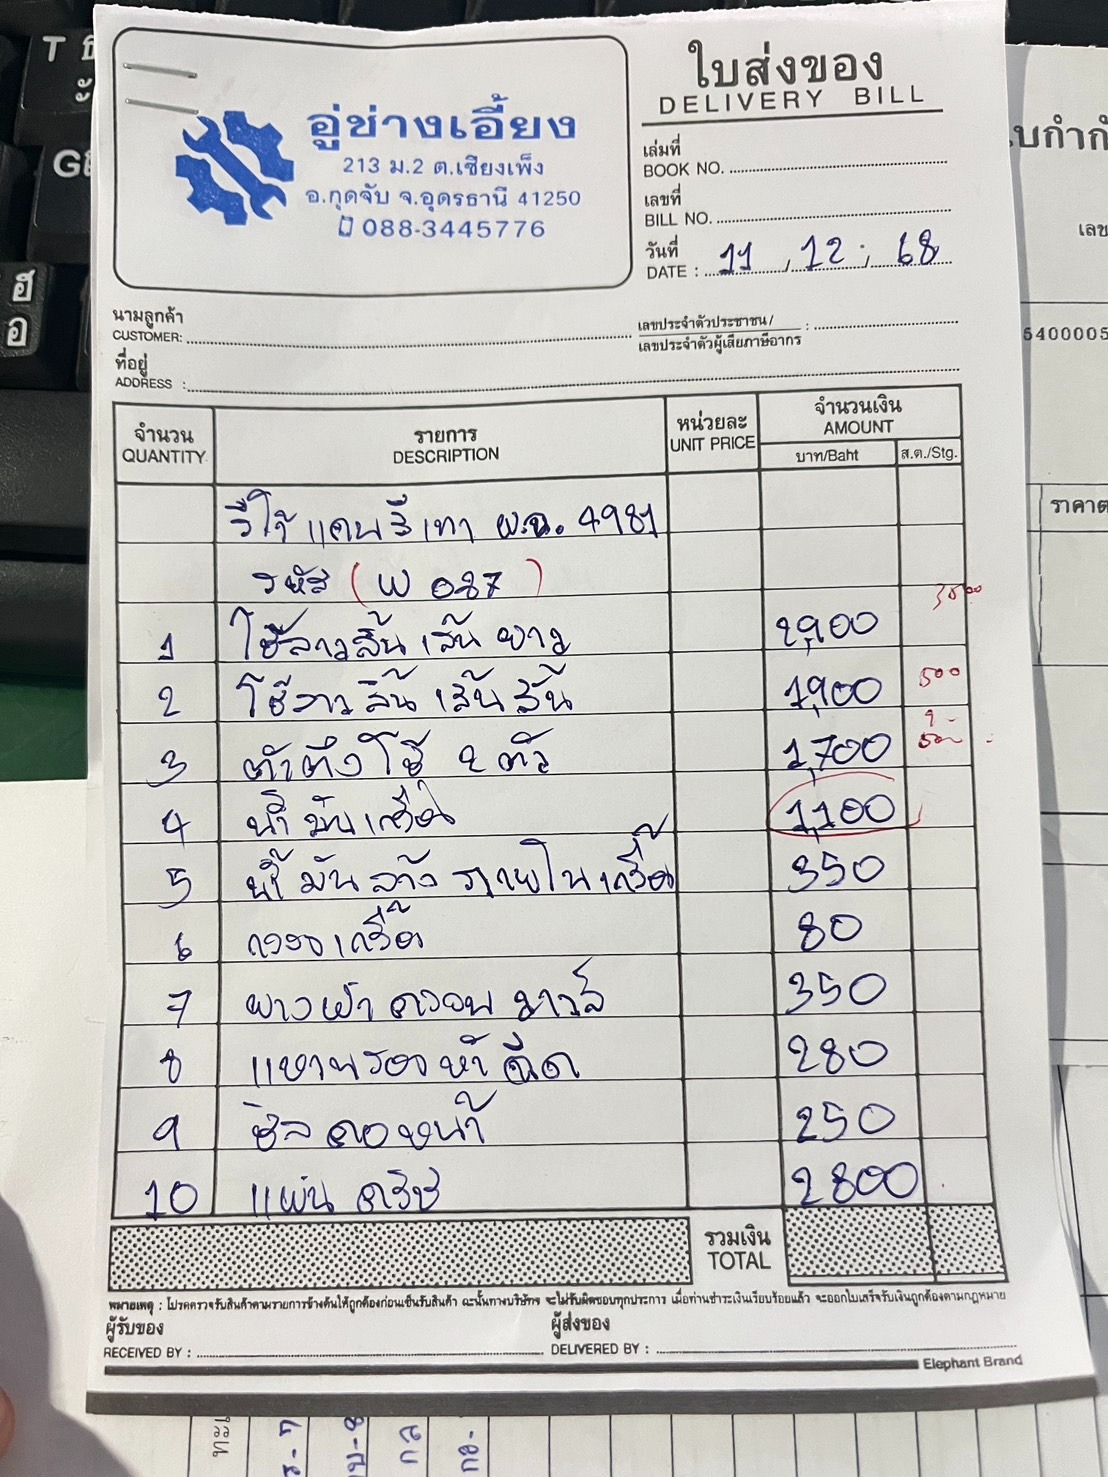 T
G
ฮ
อ
อู่ช่างเอี้ยง
213 ม.2 ต.เชียงเพ็ง
อ.กุดจับ จ.อุดรธานี 41250
088-3445776
ใบส่งของ
DELIVERY BILL
เล่มที่
BOOK NO.
เลขที่
BILL NO.
วันที่
DATE : 11 , 12 , 68
นามลูกค้า
CUSTOMER:
เลขประจำตัวประชาชน/
เลขประจำตัวผู้เสียภาษีอากร :
ที่อยู่
ADDRESS :
จำนวน
QUANTITY
รายการ
DESCRIPTION
หน่วยละ
UNIT PRICE
จำนวนเงิน
AMOUNT
บาท/Baht ส.ต./Stg.
วีโก้ แคบ สีเทา ผ.ฉ. 4981
รหัส ( W 027 )
1 โซ่ราวลิ้น เส้น ยาว 2,900
2 โซ่ราวลิ้น เส้นสั้น 1,900 500
3 ตัวตึงโซ่ 2 ตัว 1,700
4 น้ำมันเครื่อง 1,100
5 น้ำมันล้างภายในเครื่อง 350
6 กรองเครื่อง 80
7 ยางฝาครอบวาวล์ 350
8 แหวนรองหัวฉีด 280
9 ซิลคอหน้า 250
10 แผ่นครัช 2800
รวมเงิน
TOTAL
หมายเหตุ : โปรดตรวจรับสินค้าตามรายการข้างต้นให้ถูกต้องก่อนเซ็นรับสินค้า ฉะนั้นทางบริษัทฯ จะไม่รับผิดชอบทุกประการ เมื่อท่านชำระเงินเรียบร้อยแล้ว จะออกใบเสร็จรับเงินถูกต้องตามกฎหมาย
ผู้รับของ
RECEIVED BY :
ผู้ส่งของ
DELIVERED BY :
Elephant Brand
เลข
5400005